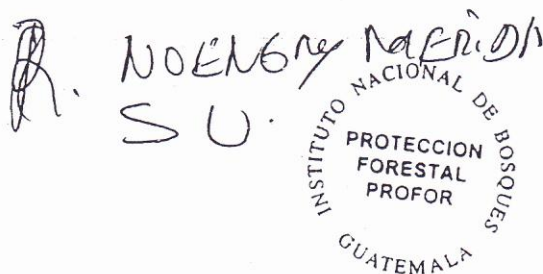 R. NOENGRy MERIDA
S U.
INSTITUTO NACIONAL DE BOSQUES
PROTECCION
FORESTAL
PROFOR
GUATEMALA